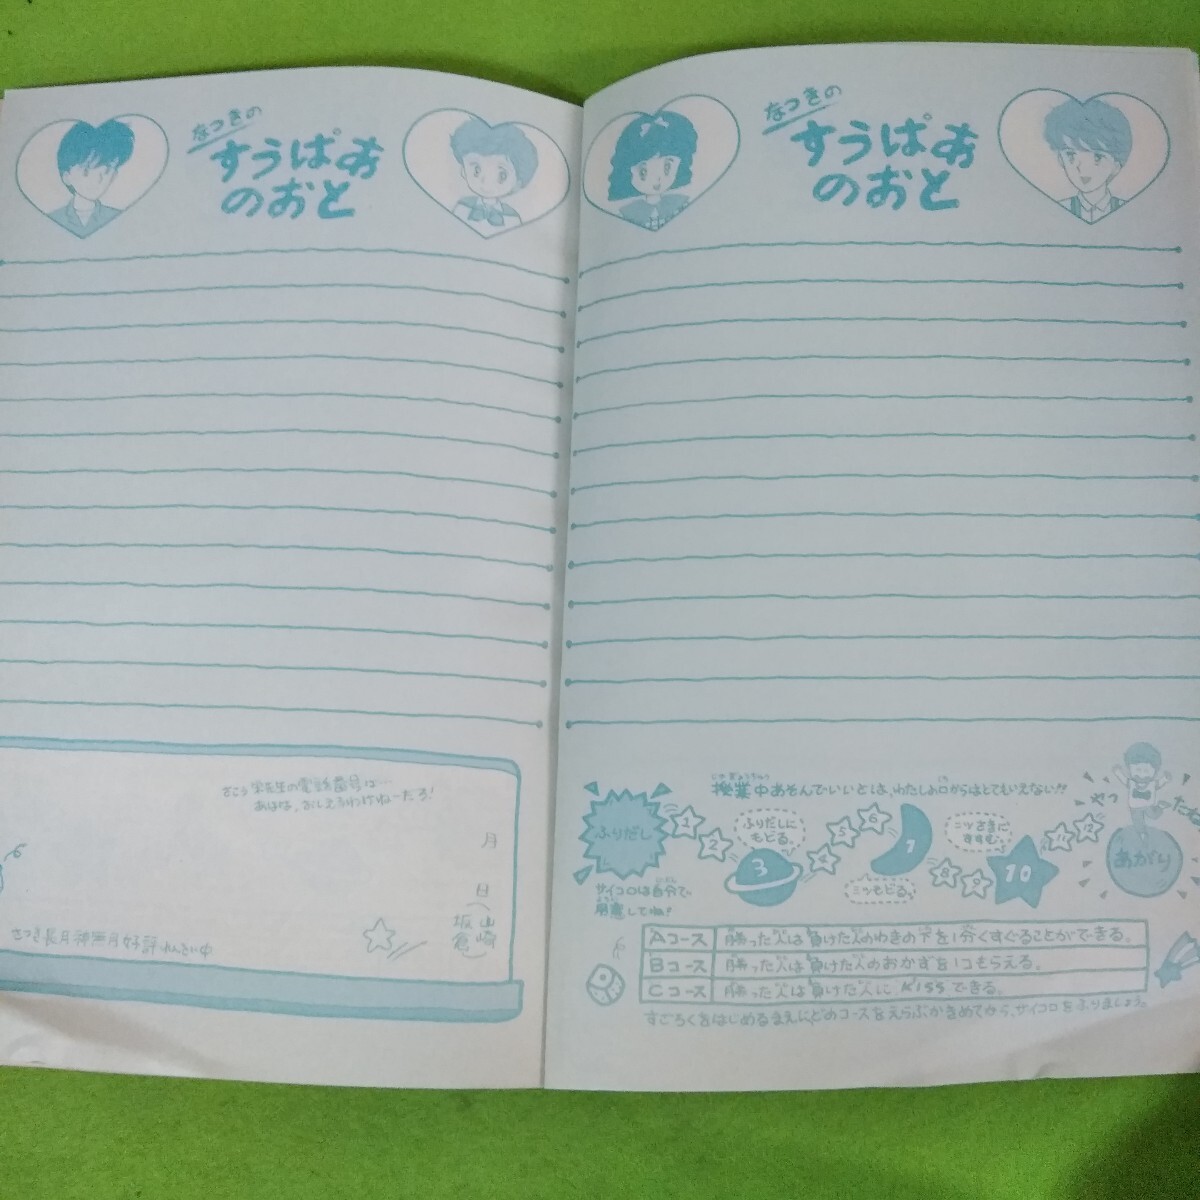 なつきの
すうぱあ
のおと
月
日(
山崎
坂倉)
さつき長月神無月好評れんさい中
なつきの
すうぱあ
のおと
授業中あそんでいいとは、わたしの口からはとてもいえない!!
じゅぎょうちゅう
ふりだし
1
2
3
ふりだしに
もどる。
4
5
6
7
三ツもどる。
8
9
10
二ツさきに
すすむ。
11
12
やっ
たね
あがり
サイコロは自分で
用意してね!
Aコース 勝った人は負けた人のわきの下を1分くすぐることができる。
Bコース 勝った人は負けた人のおかずを1つもらえる。
Cコース 勝った人は負けた人にKISSできる。
すごろくをはじめるまえに、どのコースをえらぶかきめてから、サイコロをふりましょう。